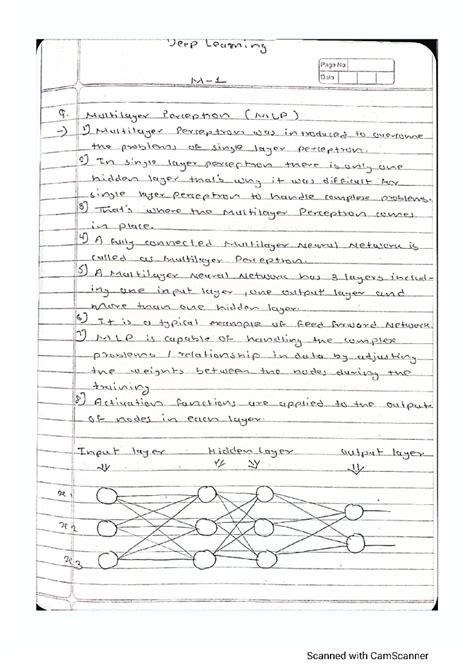 Deep Learning
Page No
Date
M-1
Q. Multilayer Perceptron (MLP)
→) 1) Multilayer Perceptron was introduced to overcome
the problems of single layer perceptron.
2) In single layer perceptron there is only one
hidden layer that's why it was difficult for
single layer perceptron to handle complex problems.
3) That's where the Multilayer Perceptron comes
in place.
4) A fully connected Multilayer Neural Network is
called as Multilayer Perceptron.
5) A Multilayer Neural Network has 3 layers includ-
ing one input layer, one output layer and
more than one hidden layer.
6) It is a typical example of feed forward Network.
7) MLP is capable of handling the complex
problems / relationship in data by adjusting
the weights between the nodes during the
training
8) Activation functions are applied to the outputs
of nodes in each layer.
Input layer Hidden Layer output layer
x1
x2
x3
Scanned with CamScanner